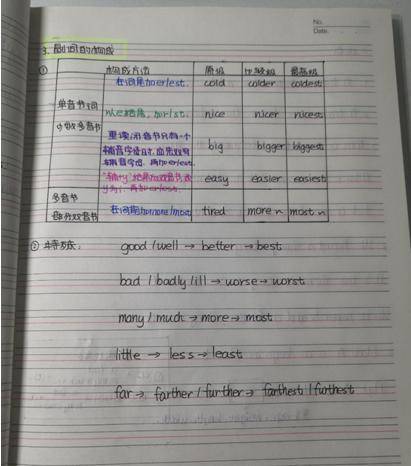 No.
Date.
3. 副词的构成
① 构成方法 原级 比较级 最高级
在词尾加er/est. cold colder coldest
单音节词
以e结尾,加r/st. nice nicer nicest
少数多音节
重读闭音节只有一个
辅音字母时,应先双写
辅音字母,再加er/est. big bigger biggest
"辅+y"结尾的双音节,改
y为i,再加er/est. easy easier easiest
多音节
部分双音节 在词前加more/most tired more~ most~
② 特殊: good/well → better → best
bad / badly/ill → worse → worst
many / much → more → most
little → less → least
far → farther / further → farthest / furthest